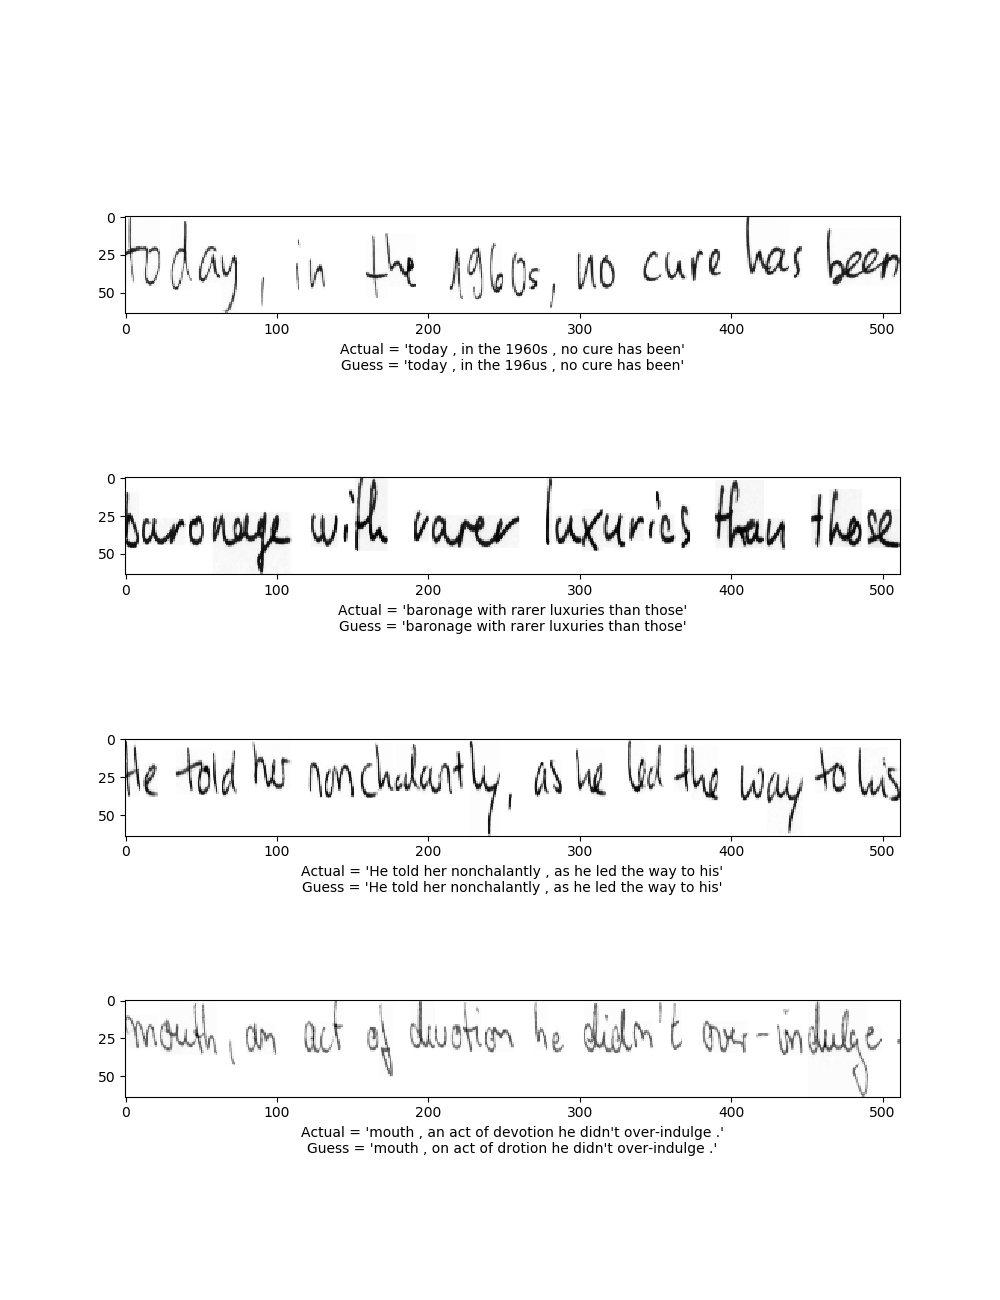 0
25
50
today, in the 1960s, no cure has been
0 100 200 300 400 500
Actual = 'today , in the 1960s , no cure has been'
Guess = 'today , in the 196us , no cure has been'
0
25
50
baronage with rarer luxuries than those
0 100 200 300 400 500
Actual = 'baronage with rarer luxuries than those'
Guess = 'baronage with rarer luxuries than those'
0
25
50
He told her nonchalantly, as he led the way to his
0 100 200 300 400 500
Actual = 'He told her nonchalantly , as he led the way to his'
Guess = 'He told her nonchalantly , as he led the way to his'
0
25
50
mouth, an act of devotion he didn't over-indulge.
0 100 200 300 400 500
Actual = 'mouth , an act of devotion he didn't over-indulge .'
Guess = 'mouth , on act of drotion he didn't over-indulge .'